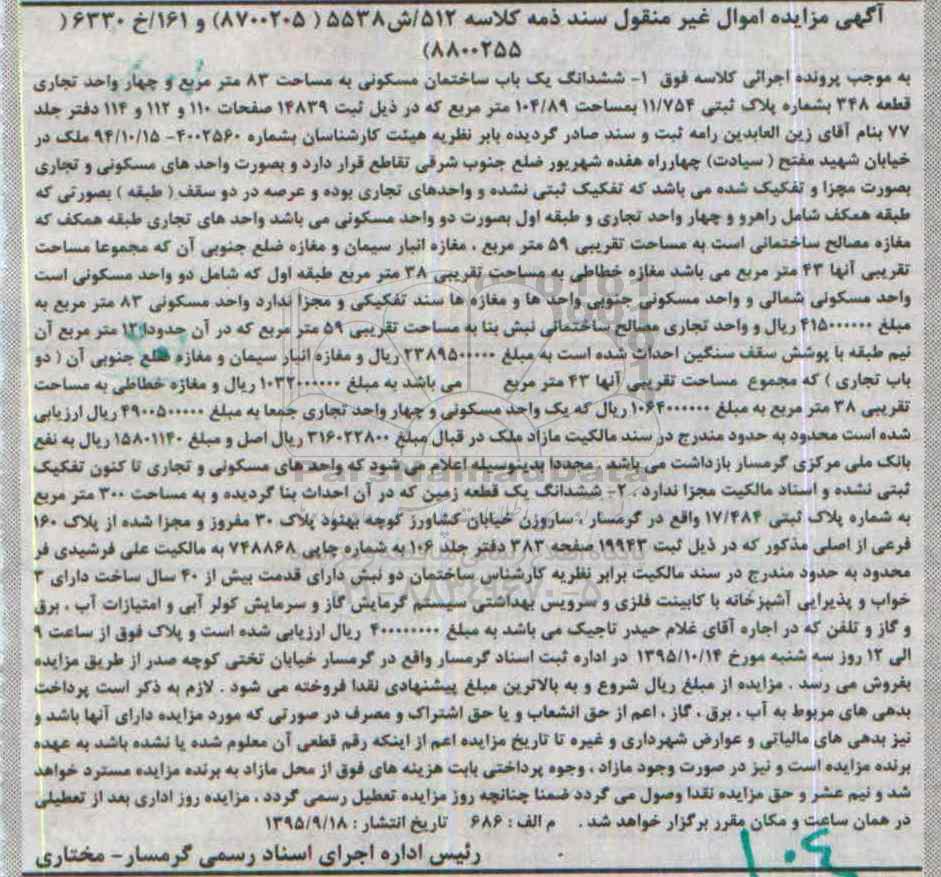 آگهی مزایده اموال غیر منقول سند ذمه کلاسه ۵۱۲/ش۵۵۳۸ ( ۸۷۰۰۲۰۵) و ۱۶۱/خ ۶۳۳۰ (
۸۸۰۰۲۵۵)
به موجب پرونده اجرائی کلاسه فوق ۱- ششدانگ یک باب ساختمان مسکونی به مساحت ۸۳ متر مربع و چهار واحد تجاری
قطعه ۳۴۸ بشماره پلاک ثبتی ۱۱/۷۵۴ بمساحت ۱۰۴/۸۹ متر مربع که در ذیل ثبت ۱۴۸۳۹ صفحات ۱۱۰ و ۱۱۲ و ۱۱۴ دفتر جلد
۷۷ بنام آقای زین العابدین رامه ثبت و سند صادر گردیده بابر نظریه هیئت کارشناسان بشماره ۴۰۰۲۵۶۰- ۹۴/۱۰/۱۵ ملک در
خیابان شهید مفتح ( سیادت) چهارراه هفده شهریور ضلع جنوب شرقی تقاطع قرار دارد و بصورت واحد های مسکونی و تجاری
بصورت مجزا و تفکیک شده می باشد که تفکیک ثبتی نشده و واحدهای تجاری بوده و عرصه در دو سقف ( طبقه ) بصورتی که
طبقه همکف شامل راهرو و چهار واحد تجاری و طبقه اول بصورت دو واحد مسکونی می باشد واحد های تجاری طبقه همکف که
مغازه مصالح ساختمانی است به مساحت تقریبی ۵۹ متر مربع ، مغازه انبار سیمان و مغازه ضلع جنوبی آن که مجموعا مساحت
تقریبی آنها ۴۳ متر مربع می باشد مغازه خطاطی به مساحت تقریبی ۳۸ متر مربع طبقه اول که شامل دو واحد مسکونی است
واحد مسکونی شمالی و واحد مسکونی جنوبی واحد ها و مغازه ها سند تفکیکی و مجزا ندارد واحد مسکونی ۸۳ متر مربع به
مبلغ ۴۱۵۰۰۰۰۰۰ ریال و واحد تجاری مصالح ساختمانی نبش بنا به مساحت تقریبی ۵۹ متر مربع که در آن حدودا ۱۳ متر مربع آن
نیم طبقه با پوشش سقف سنگین احداث شده است به مبلغ ۲۳۸۹۵۰۰۰۰۰ ریال و مغازه انبار سیمان و مغازه ضلع جنوبی آن ( دو
باب تجاری ) که مجموع مساحت تقریبی آنها ۴۳ متر مربع می باشد به مبلغ ۱۰۳۲۰۰۰۰۰۰ ریال و مغازه خطاطی به مساحت
تقریبی ۳۸ متر مربع به مبلغ ۱۰۶۴۰۰۰۰۰۰ ریال که یک واحد مسکونی و چهار واحد تجاری جمعا به مبلغ ۴۹۰۰۵۰۰۰۰۰ ریال ارزیابی
شده است محدود به حدود مندرج در سند مالکیت مازاد ملک در قبال مبلغ ۳۱۶۰۲۲۸۰۰ ریال اصل و مبلغ ۱۵۸۰۱۱۴۰ ریال به نفع
بانک ملی مرکزی گرمسار بازداشت می باشد . مجددا بدینوسیله اعلام می شود که واحد های مسکونی و تجاری تا کنون تفکیک
ثبتی نشده و اسناد مالکیت مجزا ندارد . ۲- ششدانگ یک قطعه زمین که در آن احداث بنا گردیده و به مساحت ۳۰۰ متر مربع
به شماره پلاک ثبتی ۱۷/۴۸۴ واقع در گرمسار ، ساروزن خیابان کشاورز کوچه بهنود پلاک ۳۰ مفروز و مجزا شده از پلاک ۱۶۰
فرعی از اصلی مذکور که در ذیل ثبت ۱۹۹۴۳ صفحه ۳۸۳ دفتر جلد ۱۰۶ به شماره چاپی ۷۴۸۸۶۸ به مالکیت علی فرشیدی فر
محدود به حدود مندرج در سند مالکیت برابر نظریه کارشناس ساختمان دو نبش دارای قدمت بیش از ۴۰ سال ساخت دارای ۳
خواب و پذیرایی آشپزخانه با کابینت فلزی و سرویس بهداشتی سیستم گرمایش گاز و سرمایش کولر آبی و امتیازات آب ، برق
و گاز و تلفن که در اجاره آقای غلام حیدر تاجیک می باشد به مبلغ ۴۰۰۰۰۰۰۰۰ ریال ارزیابی شده است و پلاک فوق از ساعت ۹
الی ۱۲ روز سه شنبه مورخ ۱۳۹۵/۱۰/۱۴ در اداره ثبت اسناد گرمسار واقع در گرمسار خیابان تختی کوچه صدر از طریق مزایده
بفروش می رسد . مزایده از مبلغ ریال شروع و به بالاترین مبلغ پیشنهادی نقدا فروخته می شود . لازم به ذکر است پرداخت
بدهی های مربوط به آب ، برق ، گاز ، اعم از حق انشعاب و یا حق اشتراک و مصرف در صورتی که مورد مزایده دارای آنها باشد و
نیز بدهی های مالیاتی و عوارض شهرداری و غیره تا تاریخ مزایده اعم از اینکه رقم قطعی آن معلوم شده یا نشده باشد به عهده
برنده مزایده است و نیز در صورت وجود مازاد ، وجوه پرداختی بابت هزینه های فوق از محل مازاد به برنده مزایده مسترد خواهد
شد و نیم عشر و حق مزایده نقدا وصول می گردد ضمنا چنانچه روز مزایده تعطیل رسمی گردد ، مزایده روز اداری بعد از تعطیلی
در همان ساعت و مکان مقرر برگزار خواهد شد . م الف : ۶۸۶ تاریخ انتشار : ۱۳۹۵/۹/۱۸
رئیس اداره اجرای اسناد رسمی گرمسار- مختاری
۱۰۴
ParsNamadData